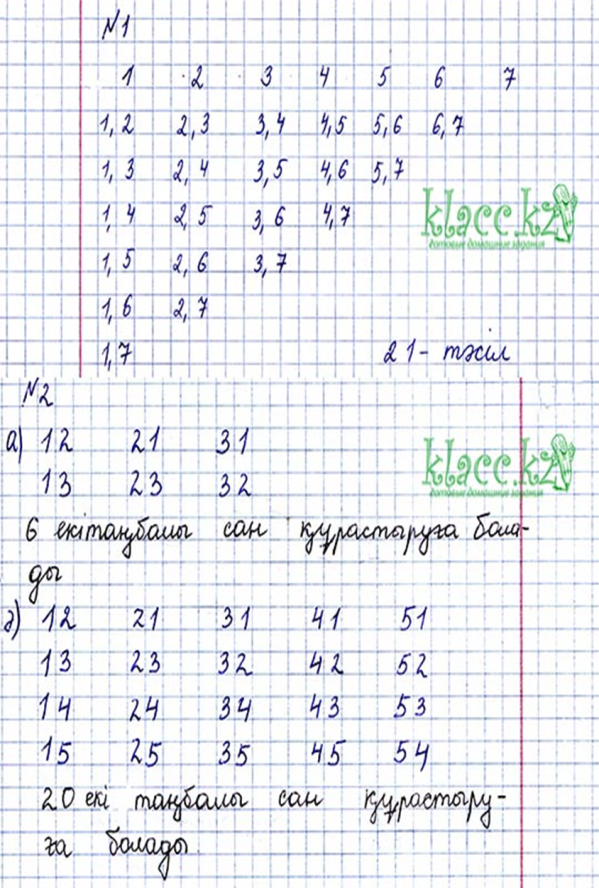 №1
1 2 3 4 5 6 7
1,2 2,3 3,4 4,5 5,6 6,7
1,3 2,4 3,5 4,6 5,7
1,4 2,5 3,6 4,7
klacc.kz
готовые домашние задания
1,5 2,6 3,7
1,6 2,7
1,7 21- тәсіл
№2
а) 12 21 31
13 23 32
klacc.kz
готовые домашние задания
6 екітаңбалы сан құрастыруға бола-
ды
ә) 12 21 31 41 51
13 23 32 42 52
14 24 34 43 53
15 25 35 45 54
20 екі таңбалы сан құрастыру-
ға болады